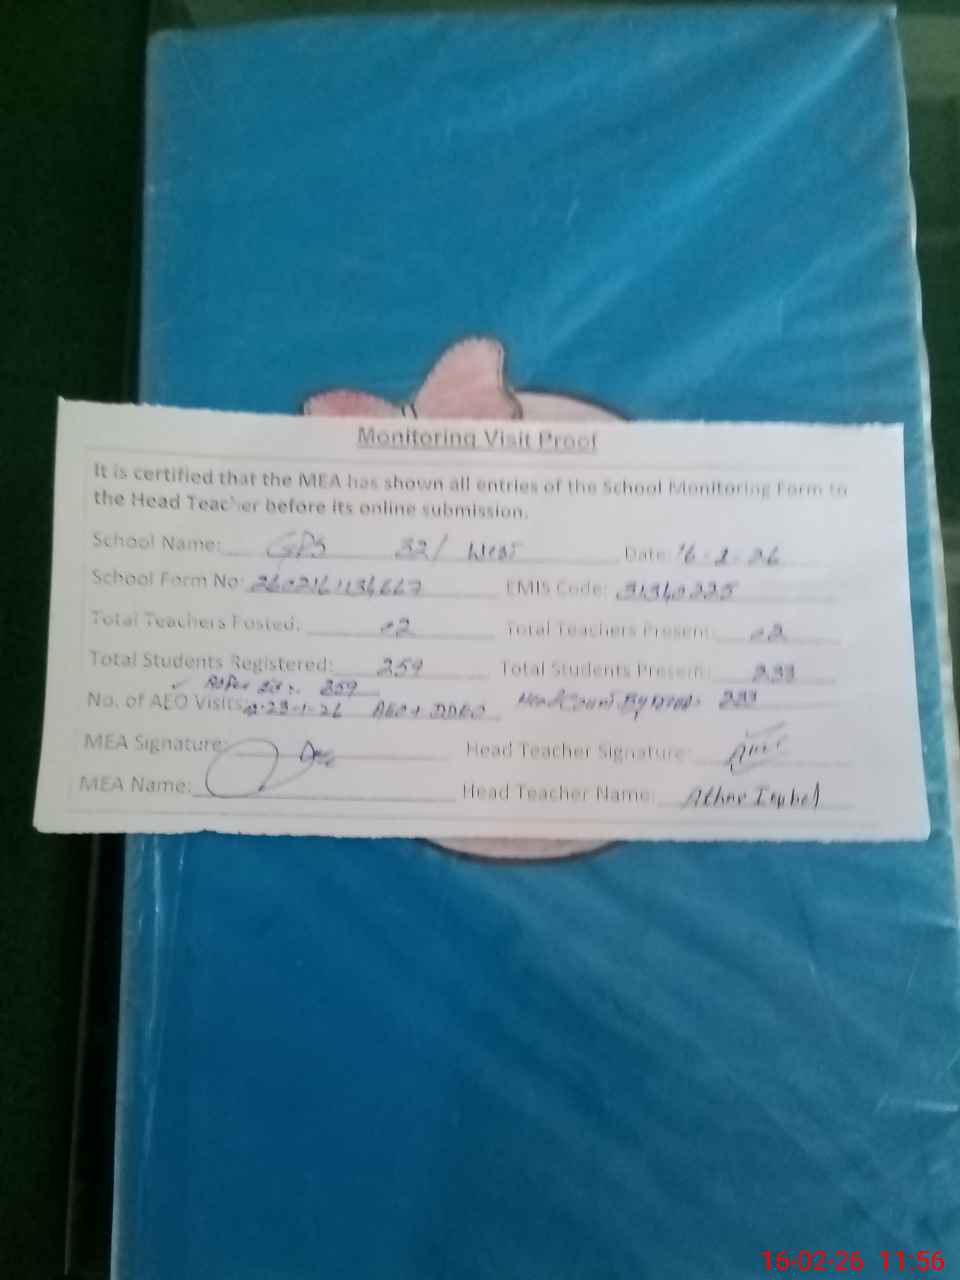 Monitoring Visit Proof
It is certified that the MEA has shown all entries of the School Monitoring Form to
the Head Teacher before its online submission.
School Name: GPS 32/ West Date: 16-2-26
School Form No: EMIS Code: 31340225
Total Teachers Posted: 02 Total Teachers Present: 02
Total Students Registered: 259 Total Students Present: 233
259
No. of AEO Visits 23-1-26 AEO+DDEO Head Count By 233
MEA Signature: Head Teacher Signature:
MEA Name: Head Teacher Name:
16-02-26 11:56